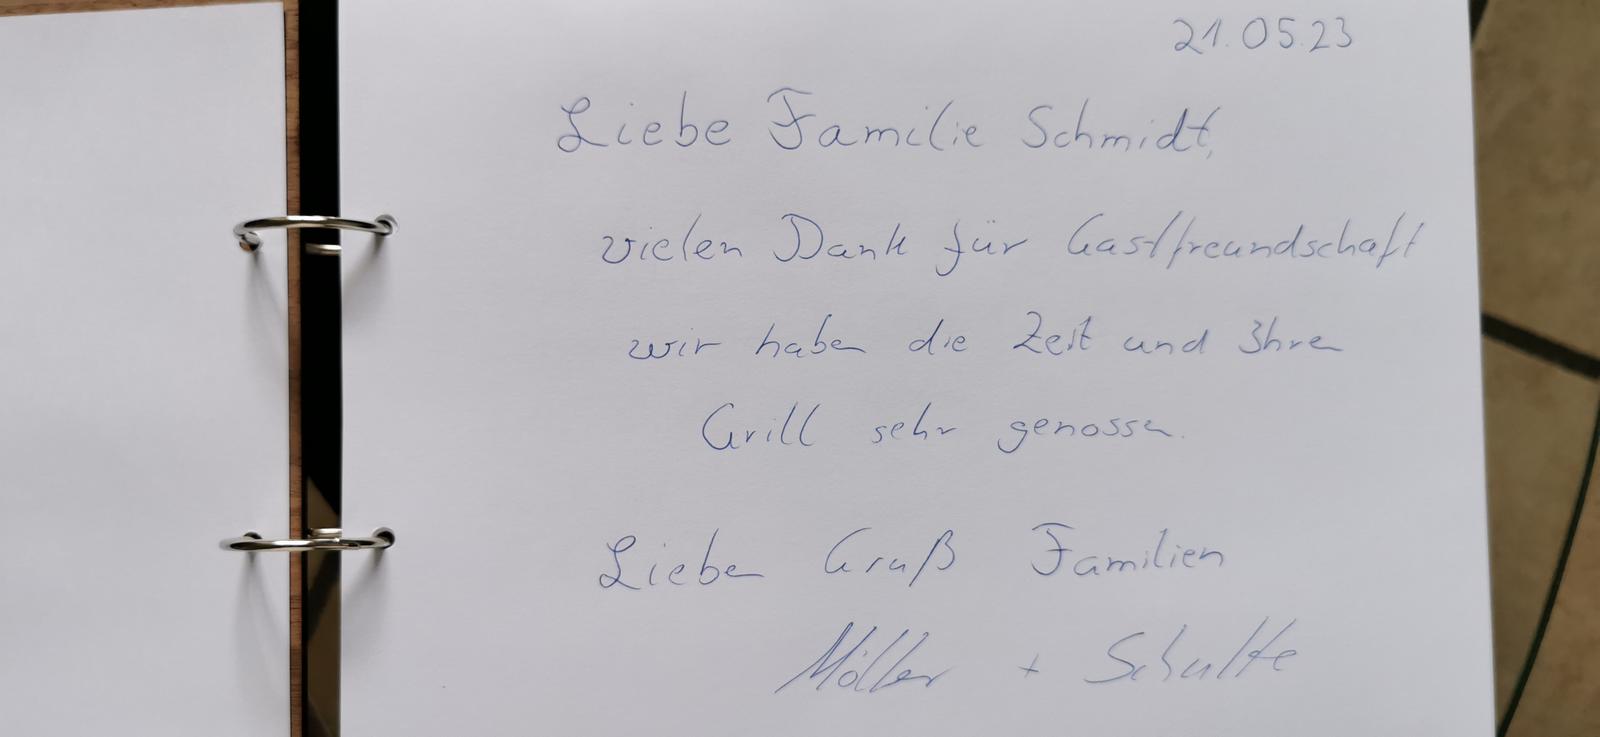 21.05.23
Liebe Familie Schmidt,
vielen Dank für Gastfreundschaft
wir haben die Zeit und Ihren
Grill sehr genossen.
Lieben Gruß Familien
Möller + Schulte